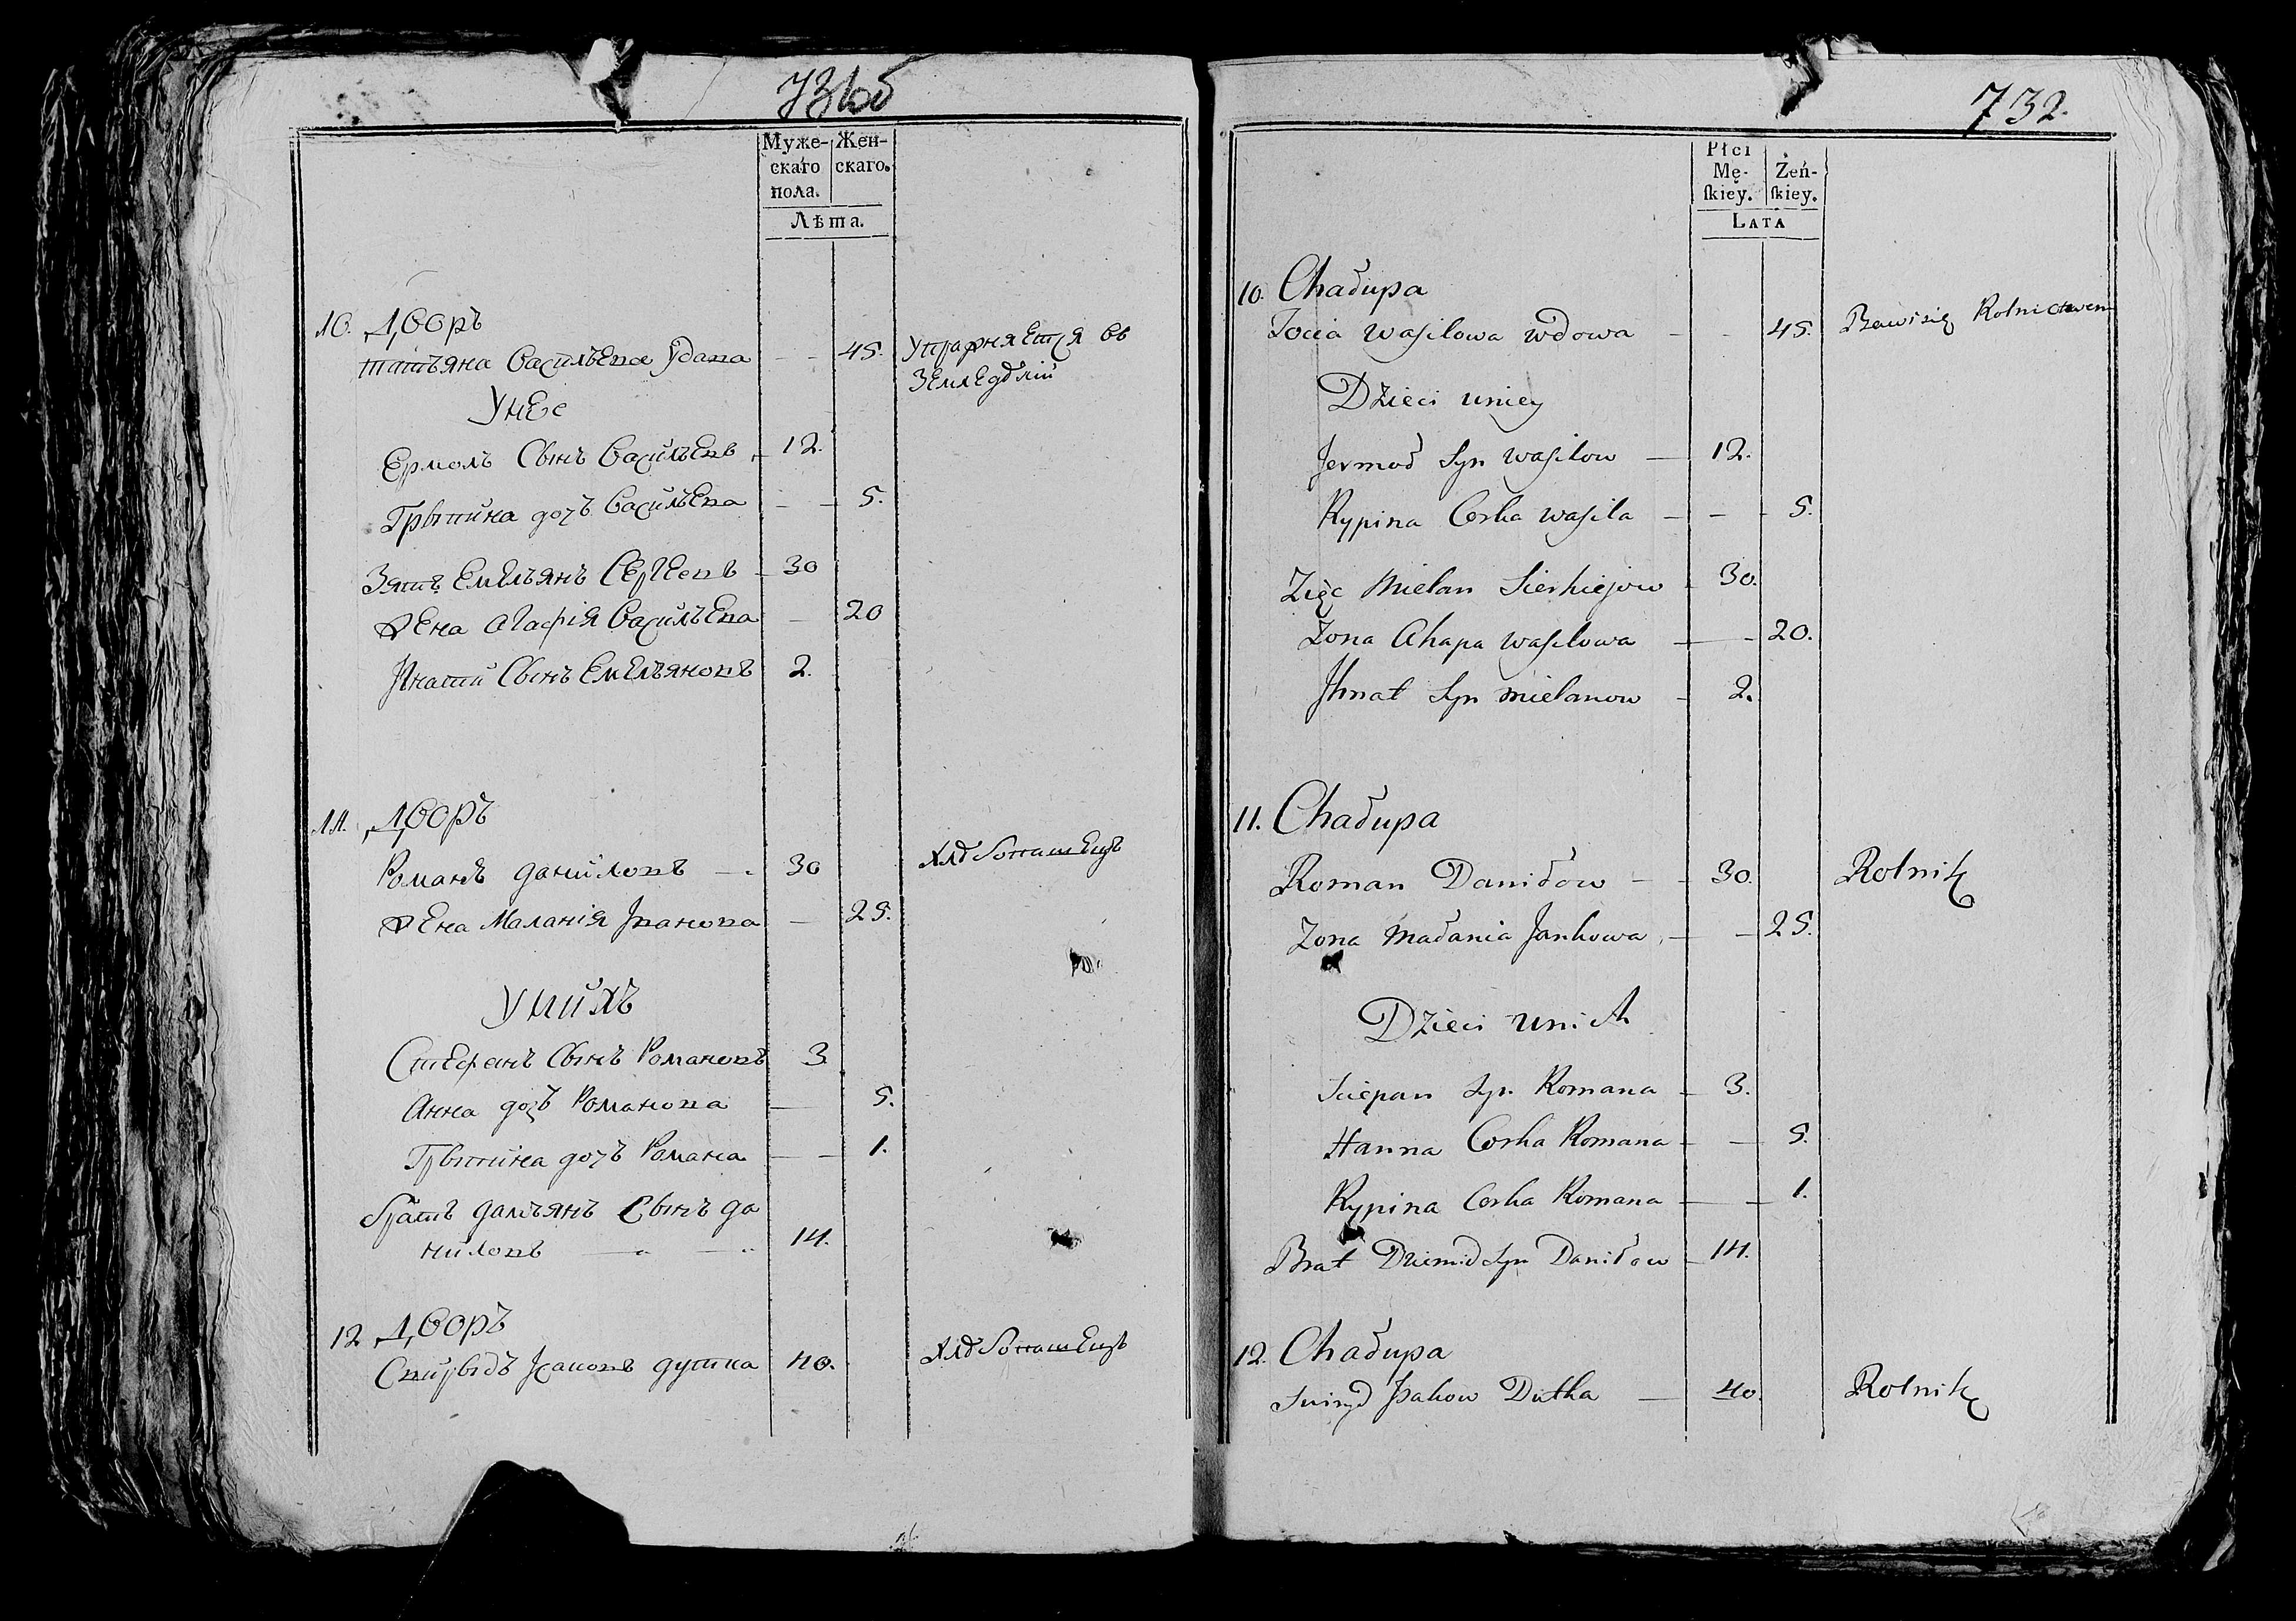 731об
Муже- Жен-
скаго скаго.
пола.
Лѣта.
10. Дворъ
татъяна Василъева удава - - 45. упражняется въ
Земледѣлїй
У нее
Ермолъ Сынъ Василъевъ - 12.
дочъ Василъева - - 5.
Зятъ Емелъянъ Сергеевъ - 30
жена Агафiя Василъева - 20
Игнатй Сынъ Емелъяновъ 2.
11. Дворъ
Романъ данйловъ - 30 хлѣбопашецъ
жена Маланiя Иванова - 25.
У нйхъ
Стефанъ Сынъ Романовъ 3
Анна дочъ Романова - 5.
дочъ Романа - - 1.
братъ дамъянъ Сынъ да
нйловъ - - 14.
12 Дворъ
Свйрыдъ Исаковъ дутка 40. хлѣбопашецъ
732.
Płci
Mę- Żeń-
skiey. skiey.
LATA
10. Chałupa
wasilowa wdowa - - 45. Bawi się Rolnictwem
Dzieci uniey
Jermoł Syn wasilow - 12.
Kypina Corka wasila - - - 5.
Zięć Mielan Sierhiejow - 30.
Zona Ahapa wasilowa - - 20.
Jhnat Syn mielanow - 2.
11. Chałupa
Roman Daniłow - - 30. Rolnik
Zona Małania Jankowa - - 25.
Dzieci unich
Sciepan Syn Romana - 3.
Hanna Corka Romana - - 5.
Kypina Corka Romana - - 1.
Brat Dziemid Syn Daniłow - 14.
12. Chałupa
Swiryd Isakow Dutka - 40. Rolnik